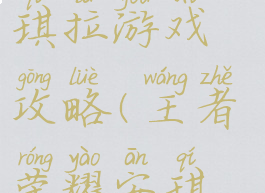 琪拉游戏
gōng lüè wáng zhě
攻略(王者
róng yào ān qí
荣耀安琪